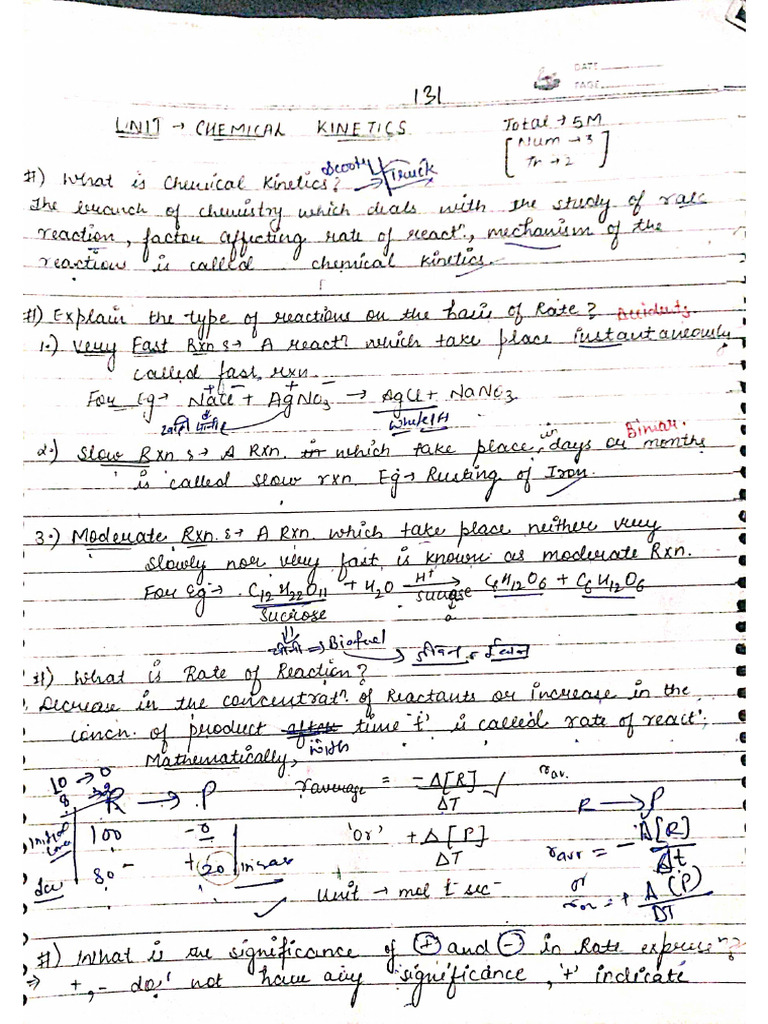 DATE
PAGE
131
UNIT → CHEMICAL KINETICS
Total → 5M
[Num → 3
Tr → 2]
Scooty Truck
#) What is Chemical Kinetics?
The branch of chemistry which deals with the study of rate
reaction, factor affecting rate of reactⁿ, mechanism of the
reactions is called chemical kinetics.
#) Explain the type of reactions on the basis of Rate? Accident
1.) Very Fast Rxn :→ A reactⁿ which take place instantaneously
called fast rxn.
For Eg → NaCl + AgNO₃ → AgCl + NaNO₃
White
Bimar
2.) Slow Rxn :→ A Rxn. in which take place, in days or months
is called slow rxn Eg → Rusting of Iron.
3.) Moderate Rxn. :→ A Rxn. which take place neither very
slowly nor very fast is known as moderate Rxn.
For Eg → C₁₂H₂₂O₁₁ + H₂O H⁺→ C₆H₁₂O₆ + C₆H₁₂O₆
Sucrose
⇒ Biofuel
#) What is Rate of Reaction?
Decrease in the concentratⁿ of Reactants or increase in the
concn. of product after with time 't' is called rate of reactⁿ.
Mathematically,
10 → 0
8 → 2
R → P
Initial
100 - 0
80 - + 20
r average = -Δ[R] / ΔT
'or' + Δ[P] / ΔT
Unit → mol
rav.
R → P
rav = - Δ[R] / Δt
or
= + Δ(P) / ΔT
#) What is the significance of ⊕ and ⊖ in Rate expressⁿ?
⇒ +, - do not have any significance, '+' indicate